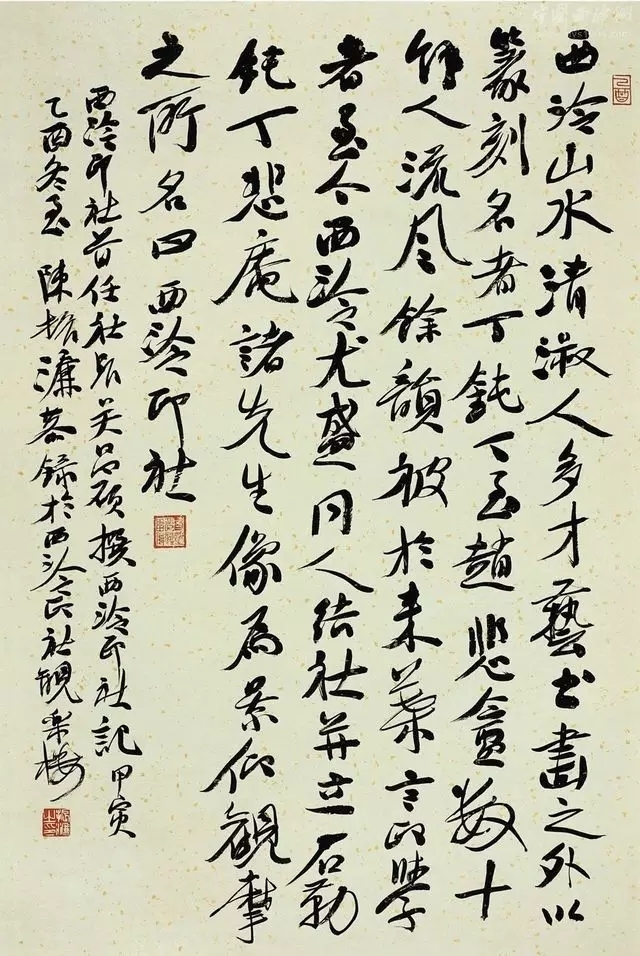 西泠山水清淑人多才藝书畫之外以
篆刻名者丁鈍丁至趙悲盦數十
餘人流風餘韻被於来葉言印學
者至今西泠尤盛同人结社并立石勒
鈍丁悲庵諸先生像為景仰觀摩
之所名曰西泠印社
西泠印社首任社長吴昌碩撰西泠印社記甲寅
乙酉冬至 陳振濂恭録於西泠印社觀樂樓